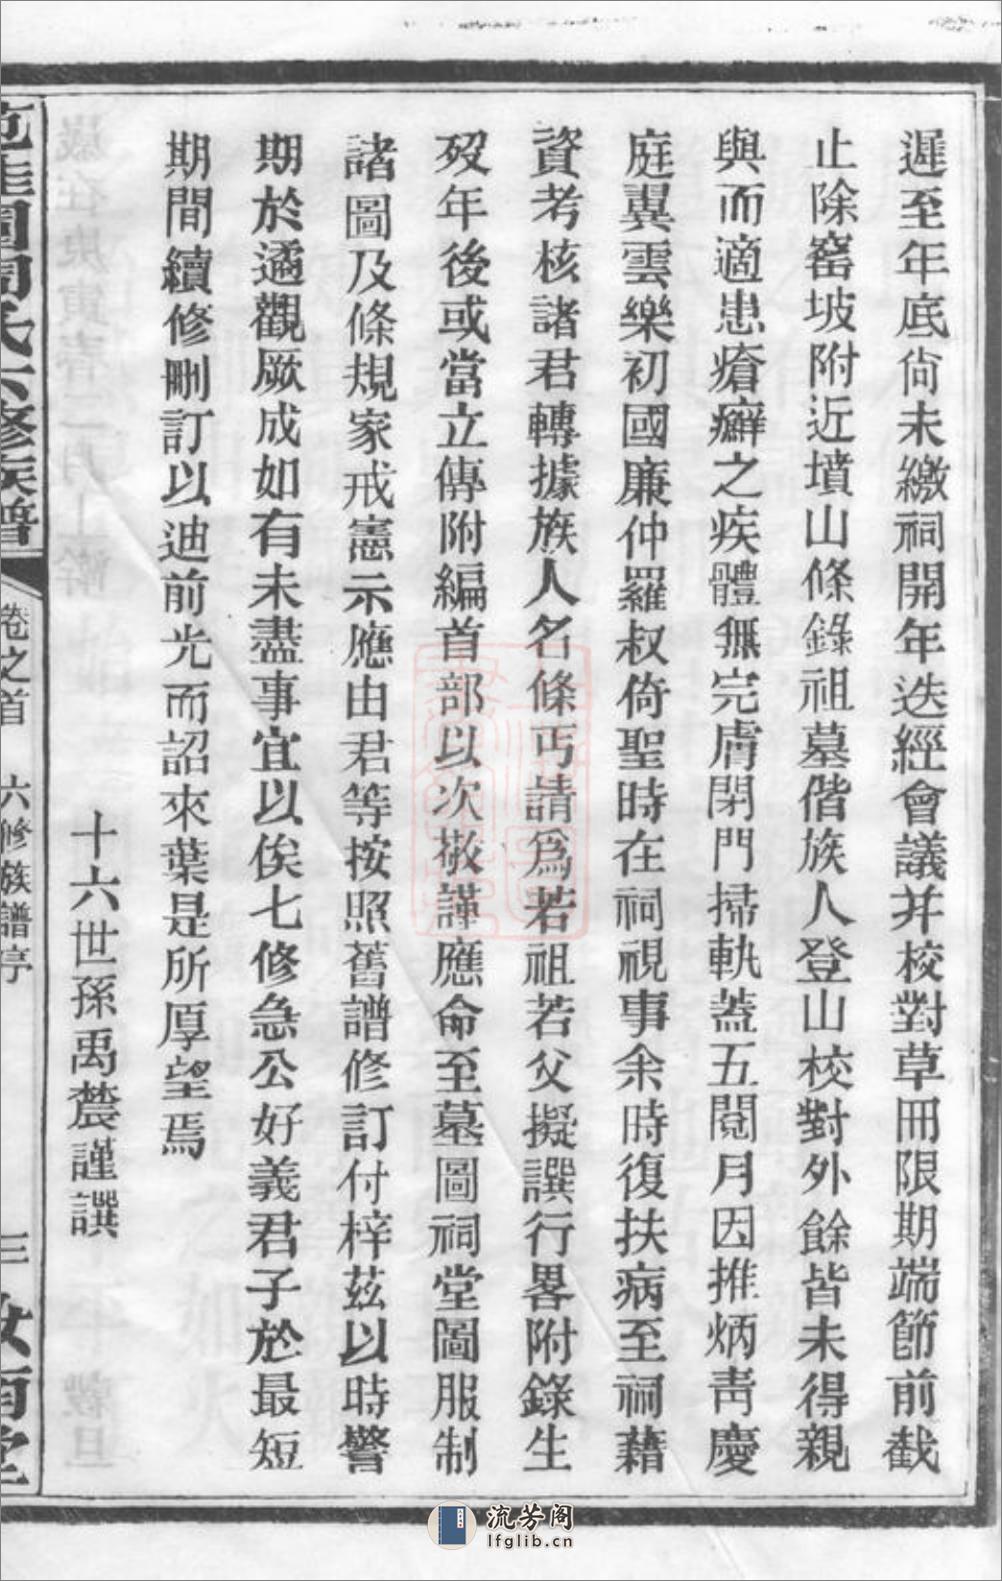 遲至年底尙未繳祠開年迭經會議并校對草冊限期端節前截
止除窰坡附近墳山條錄祖墓偕族人登山校對外餘皆未得親
與而適患瘡癬之疾體無完膚閉門掃軌蓋五閱月因推炳靑慶
庭翼雲樂初國廉仲羅叔倚聖時在祠視事余時復扶病至祠藉
資考核諸君轉據族人名條丐請爲若祖若父擬譔行畧附錄生
歿年後或當立傳附編首部以次敬謹應命至墓圖祠堂圖服制
諸圖及條規家戒憲示應由君等按照舊譜修訂付梓茲以時警
期於遹觀厥成如有未盡事宜以俟七修急公好義君子於最短
期間續修刪訂以迪前光而詔來葉是所厚望焉
十六世孫禹蕽謹譔
周氏六修族譜
卷之首 六修族譜序 三
流芳阁
lfglib.cn